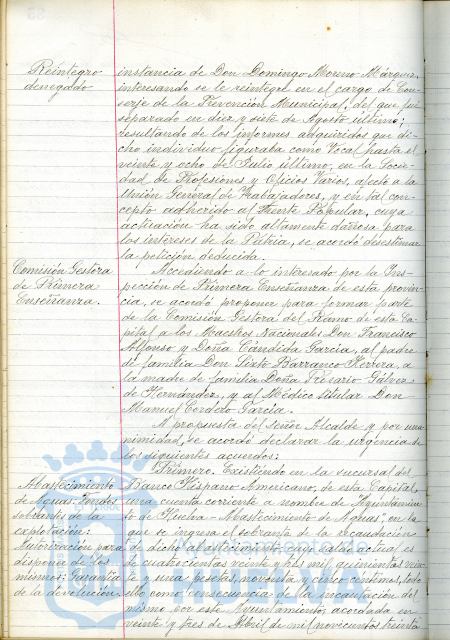 Reintegro
denegado
instancia de Don Domingo Moreno Márquez,
interesando se le reintegre en el cargo de Con-
serje de la Prevención Municipal, del que fué
separado en diez y siete de Agosto último;
resultando de los informes adquiridos que di-
cho individuo figuraba como Vocal hasta el
veinte y ocho de Julio último, en la Socie-
dad de Profesiones y Oficios Varios, afecta a la
Unión General de Trabajadores, y en tal con-
cepto adherido al Frente Popular, cuya
actuación ha sido altamente dañosa para
los intereses de la Patria, se acordó desestimar
la petición deducida.
Comisión Gestora
de Primera
Enseñanza.
Accediendo a lo interesado por la Ins-
pección de Primera Enseñanza de esta provin-
cia, se acordó proponer para formar parte
de la Comisión Gestora del Ramo de esta Ca-
pital a los Maestros Nacionales Don Francisco
Alfonso y Doña Cándida García, al padre
de familia Don Sixto Barranco Herrera, a
la madre de familia Doña Rosario Gálvez
de Hernández, y al Médico titular Don
Manuel Cordero García.
A propuesta del señor Alcalde y por una-
nimidad, se acordó declarar la urgencia de
los siguientes acuerdos:
Abastecimiento
de Aguas: Fondos
sobrantes de la
explotación:
Autorización para
disponer de los
mismos: Garantía
de la devolución
Primero. Existiendo en la sucursal del
Banco Hispano Americano, de esta Capital,
una cuenta corriente a nombre de Ayuntamien-
to de Huelva - Abastecimiento de Aguas, en la
que se ingresa el sobrante de la recaudación
de dicho abastecimiento, cuyo saldo actual es
de cuatrocientas veinte y tres mil quinientas vein-
te y una pesetas, noventa y cinco céntimos, todo
ello como consecuencia de la incautación del
mismo por este Ayuntamiento, acordada en
veinte y tres de Abril de mil novecientos treinta